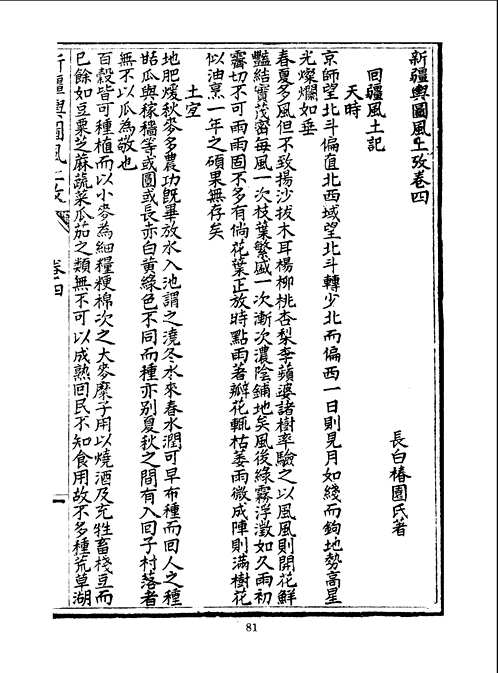 新疆輿圖風土攷卷四
長白椿園氏著
回疆風土記
天時
京師望北斗偏直北西域望北斗轉少北而偏西一日則見月如綫而鉤地勢高星
光燦爛如垂
春夏多風但不致揚沙拔木耳楊柳桃杏梨李蘋婆諸樹率驗之以風風則開花鮮
豔結實茂密每風一次枝葉繁盛一次漸次濃陰鋪地矣風後綠霧浮澂如久雨初
霽切不可雨雨固不多有倘花葉正放時點雨著瓣花輒枯萎雨微成陣則滿樹花
似油烹一年之碩果無存矣
土宜
地肥煖秋麥多農功旣畢放水入池謂之澆冬水來春水潤可早布種而回人之種
甜瓜與稼穡等或圓或長亦白黃綠色不同而種亦别夏秋之間有入回子村落者
無不以瓜為敬也
百穀皆可種植而以小麥為細糧粳棉次之大麥糜子用以燒酒及充牲畜棧豆而
已餘如豆粟芝蔴蔬菜瓜茄之類無不可以成熟回民不知食用故不多種荒草湖
新疆輿圖風土攷
卷四
一
81